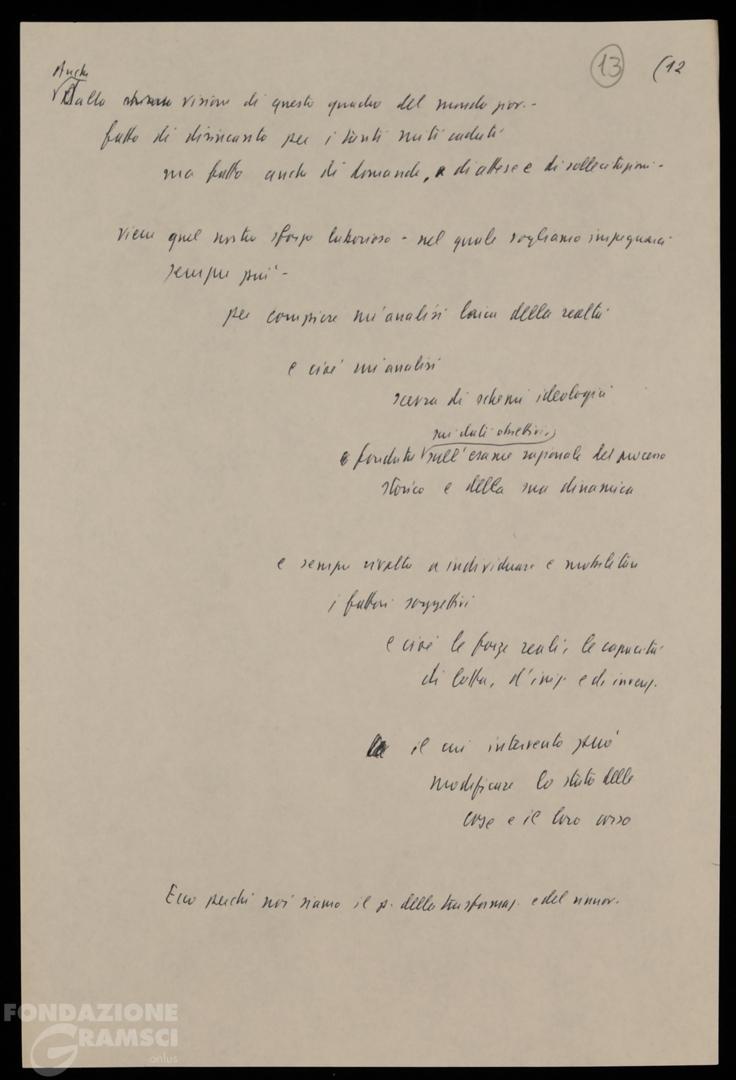 13 (12
Anche
Dalla visione di questo quadro del mondo giov.-
fatto di disincanto per i tanti miti caduti
ma fatto anche di domande, di attese e di sollecitazioni -
viene quel nostro sforzo laborioso - nel quale vogliamo impegnarci
sempre più -
per compiere un'analisi laica della realtà
e cioè un'analisi
scevra di schemi ideologici
sui dati obiettivi,
e fondata sull'esame razionale del processo
storico e della sua dinamica
e sempre rivolta a individuare e mobilitare
i fattori soggettivi
e cioè le forze reali, le capacità
di lotta, d'iniz. e di invenz.
il cui intervento può
modificare lo stato delle
cose e il loro corso
Ecco perché noi siamo il p. della trasformaz. e del rinnov.
FONDAZIONE
GRAMSCI
onlus